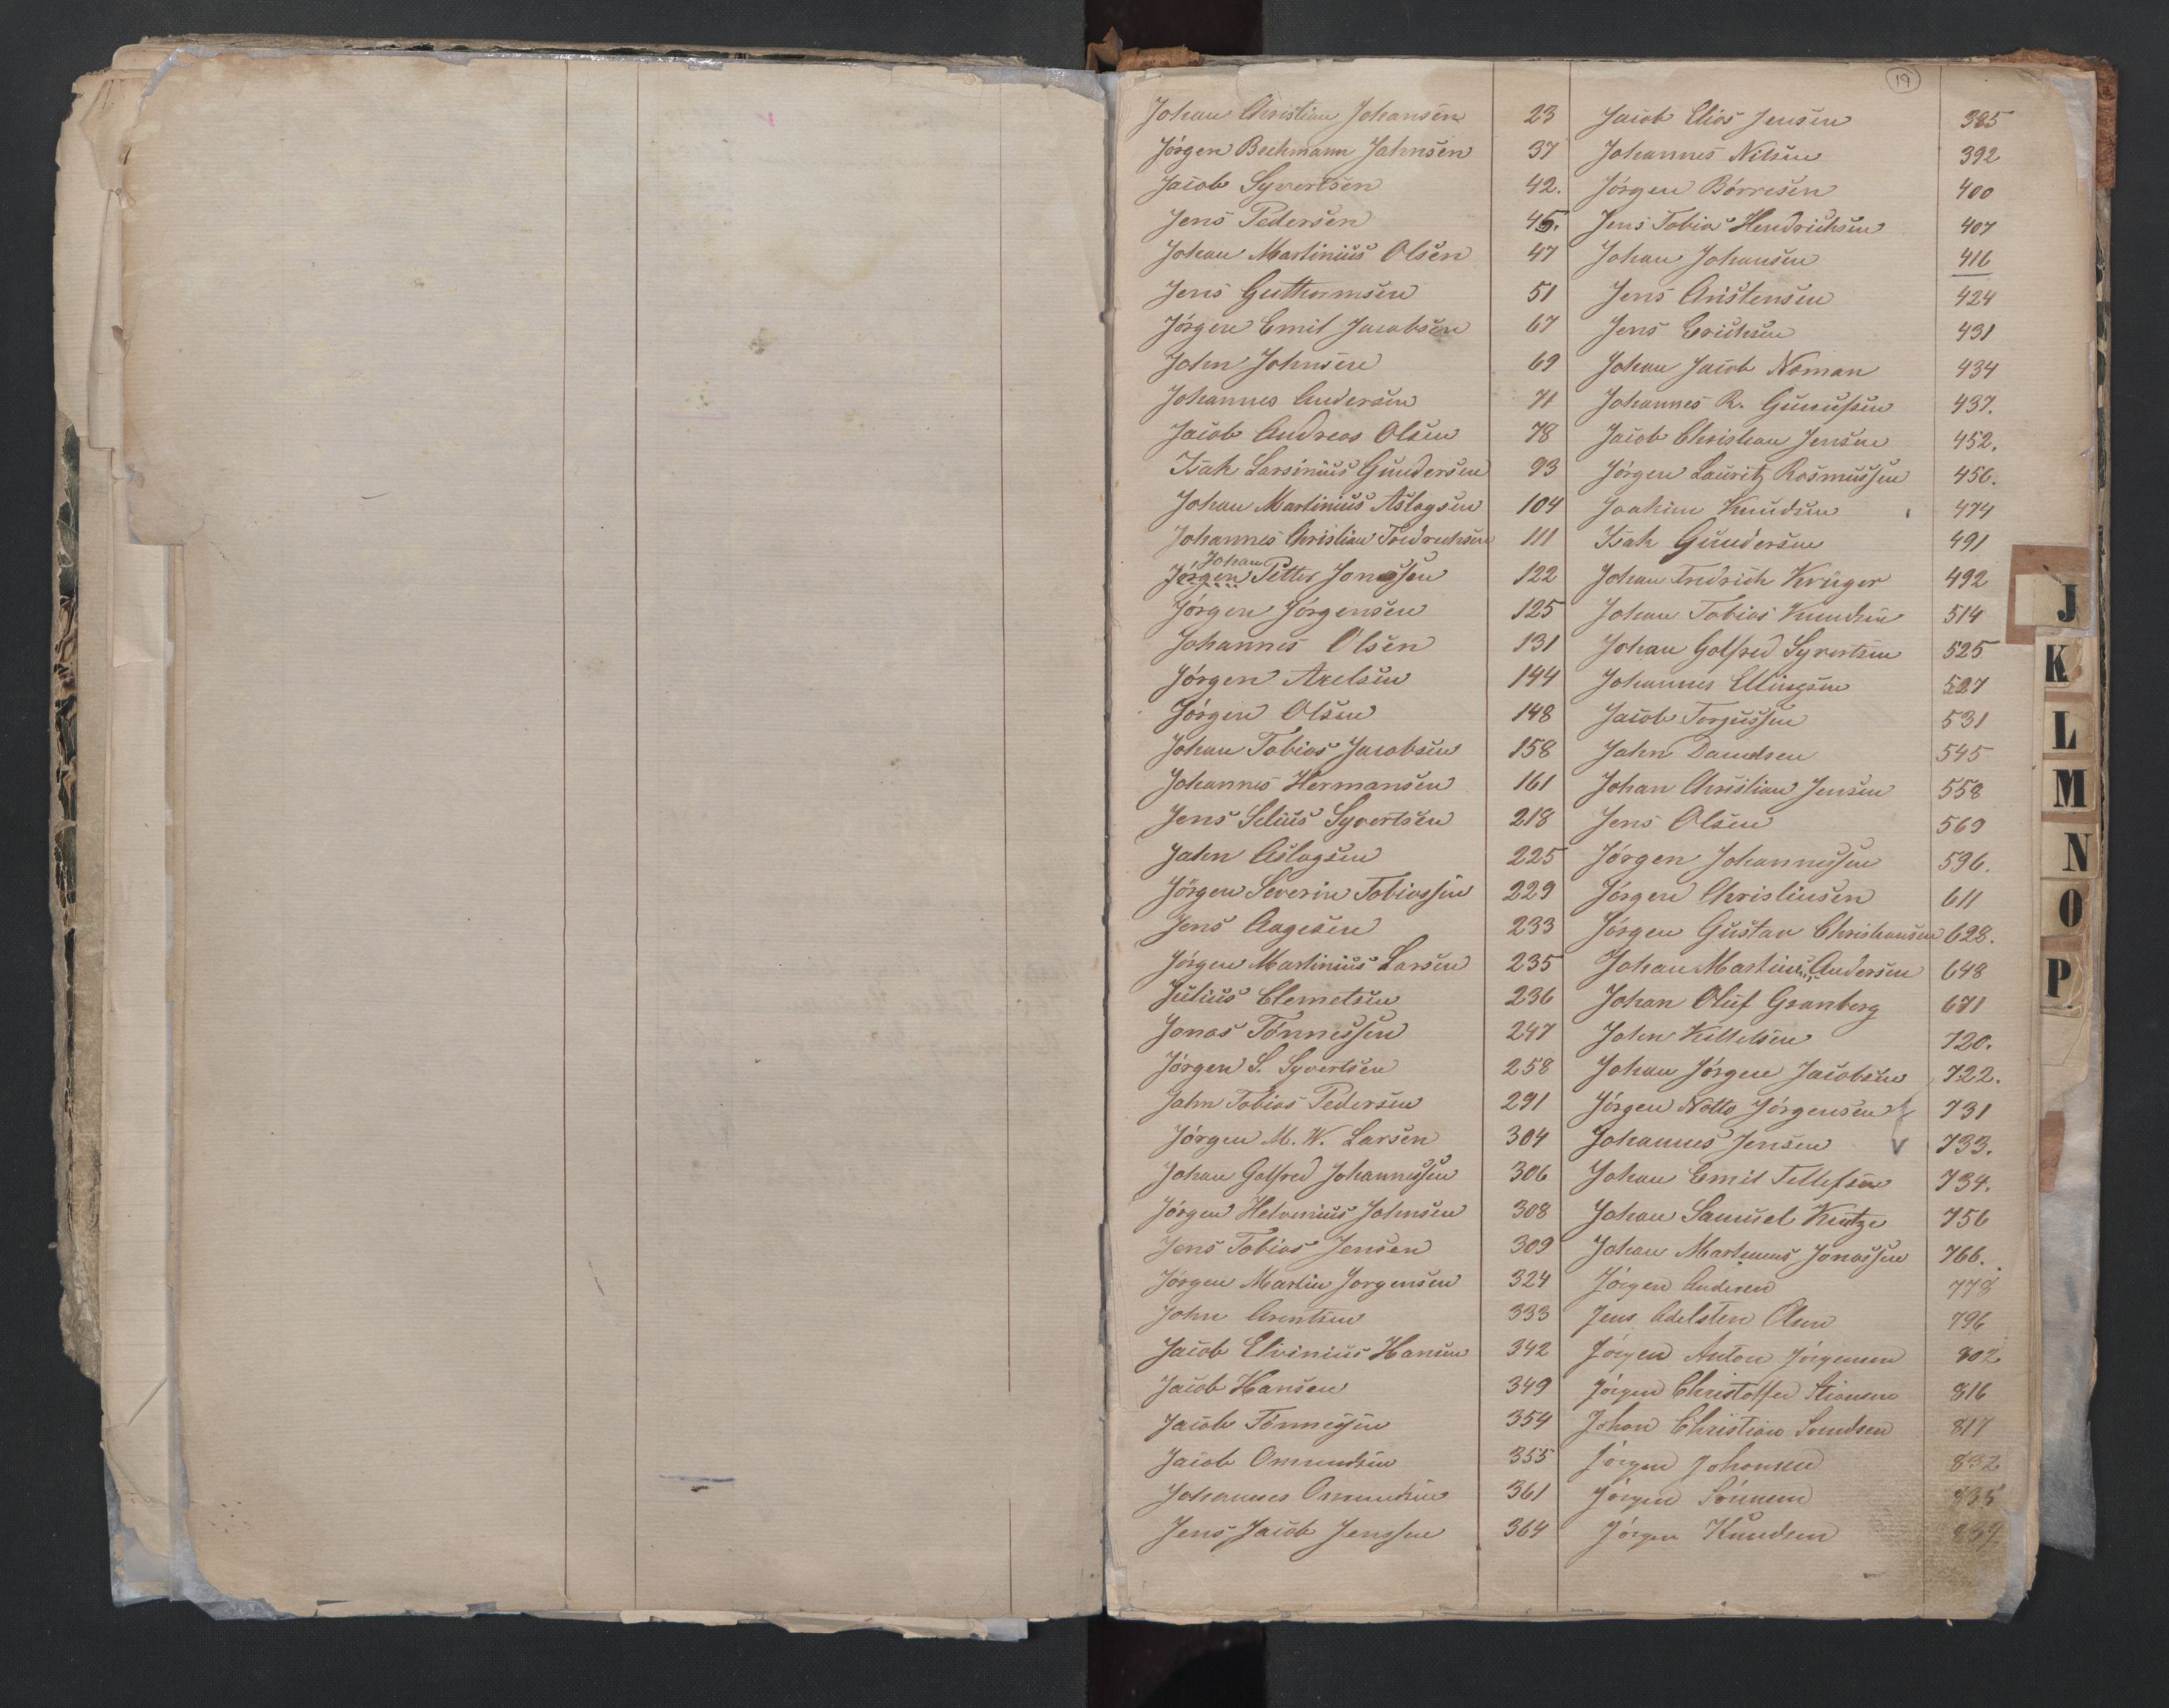 19
Johan Christian Johansen 23
Jørgen Bechmann Jahnsen 37
Jacob Syvertsen 42.
Jens Pedersen 45.
Johan Martinius Olsen 47
Jens Guttormsen 51
Jørgen Emil Jacobsen 67
John Johnsen 69
Johannes Andersen 71
Jacob Andreas Olsen 78
Isak Larsinius Gundersen 93
Johan Martinius Aslagsen 104
Johannes Christian Fredrichsen 111
Johan
Jørgen Petter Jonassen 122
Jørgen Jørgensen 125
Johannes Olsen 131
Jørgen Axelsen 144
Jørgen Olsen 148
Johan Tobias Jacobsen 158
Johannes Hermansen 161
Jens Selius Syvertsen 218
Jahn Aslagsen 225
Jørgen Severin Tobiassen 229
Jens Aagesen 233
Jørgen Martinius Larsen 235
Julius Clemetsen 236
Jonas Tønnessen 247
Jørgen S. Syvertsen 258
Jahn Tobias Pedersen 291
Jørgen M. W. Larsen 304
Johan Golfred Johannessen 306
Jørgen Helvinius Johnsen 308
Jens Tobias Jensen 309
Jørgen Martin Jørgensen 324
John Arentsen 333
Jacob Elvinius Hansen 342
Jacob Hansen 349
Jacob Tønnesen 354
Jacob Omundsen 355
Johannes Omundsen 361
Jens Jacob Jenssen 364
Jacob Elias Jensen 385
Johannes Nilsen 392
Jørgen Børresen 400
Jens Tobias Hendrichsen 407
Johan Johansen 416
Jens Christensen 424
Jens Erichsen 431
Johan Jacob Noman 434
Johannes R. Gunufsen 437.
Jacob Christian Jensen 452.
Jørgen Lauritz Rasmussen 456.
Joakim Knudsen 474
Isak Gundersen 491
Johan Fredrich Krüger 492
Johan Tobias Knudsen 514
Johan Golfred Syvertsen 525
Johannes Ellingsen 527
Jacob Torgussen 531
Jahn Davidsen 545
Johan Christian Jensen 558
Jens Olsen 569
Jørgen Johannessen 596.
Jørgen Christensen 611
Jørgen Gustav Christiansen 628.
Johan Martin Andersen 648
Johan Oluf Granberg 671
John Kittelsen 720.
Johan Jørgen Jacobsen 722.
Jørgen Notto Jørgensen 731
Johannes Jensen V 733.
Johan Emil Tellefsen 734.
Johan Samuel 756
Johan Martinius Jonassen 766.
Jørgen Andersen 778
Jens Adelsten Olsen 796
Jørgen Anton Jørgensen 802
Jørgen Christoffer 816
Johan Christian Svendsen 817
Jørgen Johansen 832
Jørgen 835
Jørgen Knudsen
J
K
L
M
N
O
P